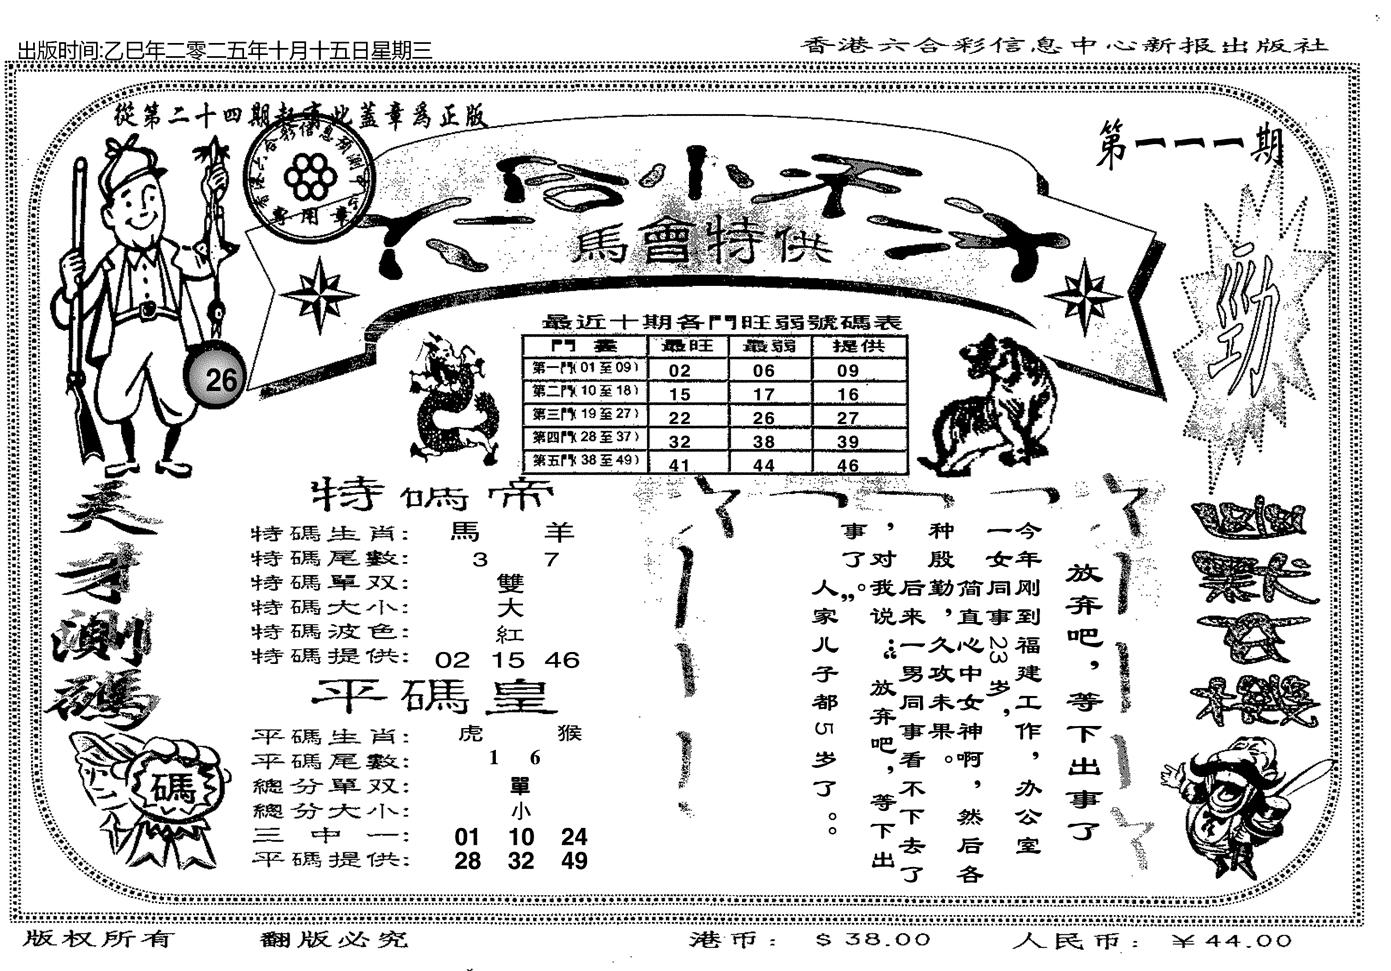 出版时间:乙巳年二零二五年十月十五日星期三
香港六合彩信息中心新报出版社
從第二十四期起有此蓋章爲正版
香港六合彩信息預測中心
專用章
第一一一期
六合小天才
馬會特供
勁
26
最近十期各門旺弱號碼表
門 最旺 最弱 提供
第一門(01至09) 02 06 09
第二門(10至18) 15 17 16
第三門(19至27) 22 26 27
第四門(28至37) 32 38 39
第五門(38至49) 41 44 46
天才測碼
碼
特碼帝
特碼生肖: 馬 羊
特碼尾數: 3 7
特碼單双: 雙
特碼大小: 大
特碼波色: 紅
特碼提供: 02 15 46
平碼皇
平碼生肖: 虎 猴
平碼尾數: 1 6
總分單双: 單
總分大小: 小
三中一: 01 10 24
平碼提供: 28 32 49
放弃吧，等下出事了
今年刚到福建工作，办公室
一女同事23岁，
简直心中女神啊，然后各
种殷勤，久攻未果。
后来一男同事看不下去了
，对我说：“放弃吧，等下出
事了。”
人家儿子都5岁了。。
版权所有
翻版必究
港币: $38.00
人民币: ¥44.00